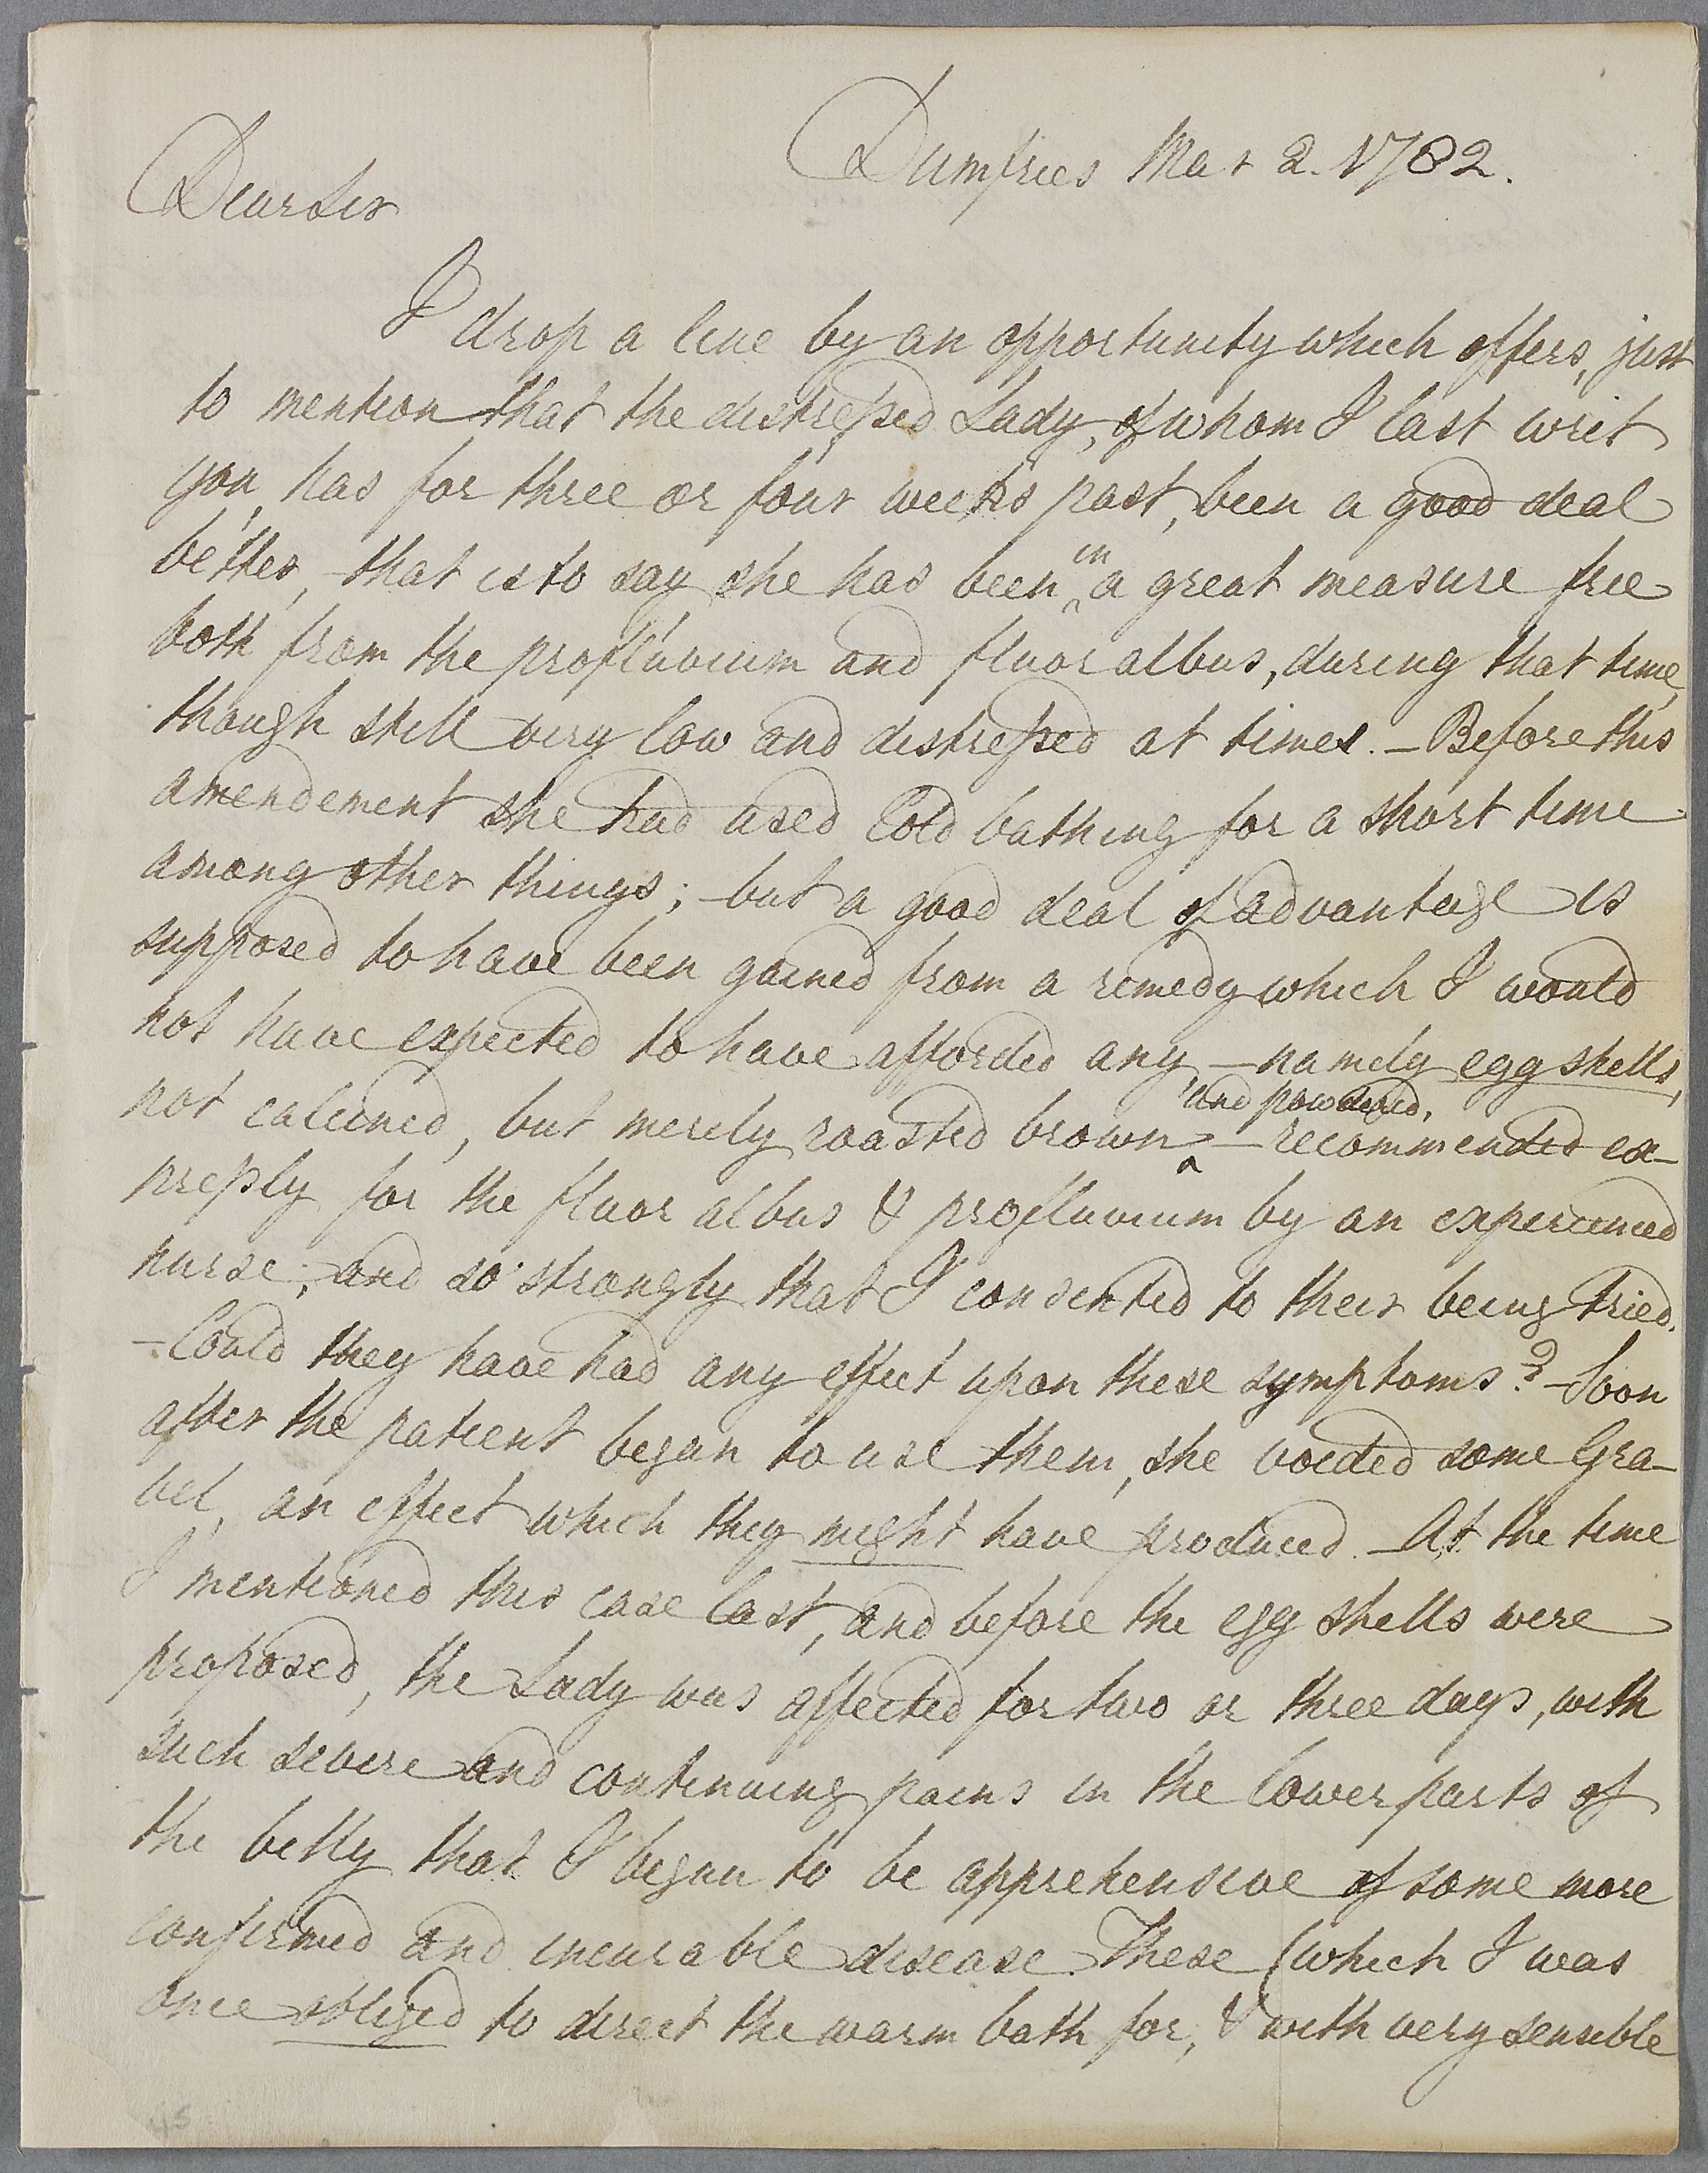 Dumfries Mar 2. 1782.
Dear Sir
I drop a line by an opportunity which offers, just
to mention that the distressed Lady, of whom I last writ
you, has for three or four weeks past, been a good deal
better, – that is to say she has been in a great measure free
both from the profluvium and fluor albus, during that time,
though still very low and distressed at times. – Before this
amendement she had used Cold bathing for a short time
among other things; – but a good deal of advantage is
supposed to have been gained from a remedy which I would
not have expected to have afforded any, – namely egg shells,
not calcined, but merely roasted brown and powdered, – recommended ex-
pressly for the fluor albus & profluvium by an experienced
nurse; and so strongly that I consented to their being tried.
– Could they have had any effect upon these symptoms? – Soon
after the patient began to use them, she voided some Gra-
vel, an effect which they might have produced. – At the time
I mentioned this case last, and before the egg shells were
proposed, the Lady was affected for two or three days, with
such severe and continuing pains in the lower parts of
the belly that I began to be apprehensive of some more
confirmed and incurable disease. These (which I was
once obliged to direct the warm bath for, & with very sensible
45